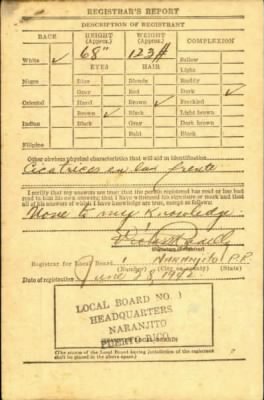 REGISTRAR'S REPORT
DESCRIPTION OF REGISTRANT
RACE HEIGHT (Approx.) WEIGHT (Approx.) COMPLEXION
68" 123#
White ✓ EYES HAIR Sallow
Light
Negro Blue Blonde Ruddy
Gray Red Dark ✓
Oriental Hazel Brown Freckled
Brown ✓ Black ✓ Light brown
Indian Black Gray Dark brown
Bald Black
Filipino
Other obvious physical characteristics that will aid in identification
Cicatrices en la frente
I certify that my answers are true; that the person registered has read or has had
read to him his own answers; that I have witnessed his signature or mark and that
all of his answers of which I have knowledge are true, except as follows:
None to my Knowledge
Registrar for Local Board 1 Naranjito P.R.
(Number) (City or county) (State)
Date of registration June 28, 1942
LOCAL BOARD NO. 1
HEADQUARTERS
NARANJITO
PUERTO RICO
(STAMP OF LOCAL BOARD)
(The stamp of the Local Board having jurisdiction of the registrant
shall be placed in the above space)